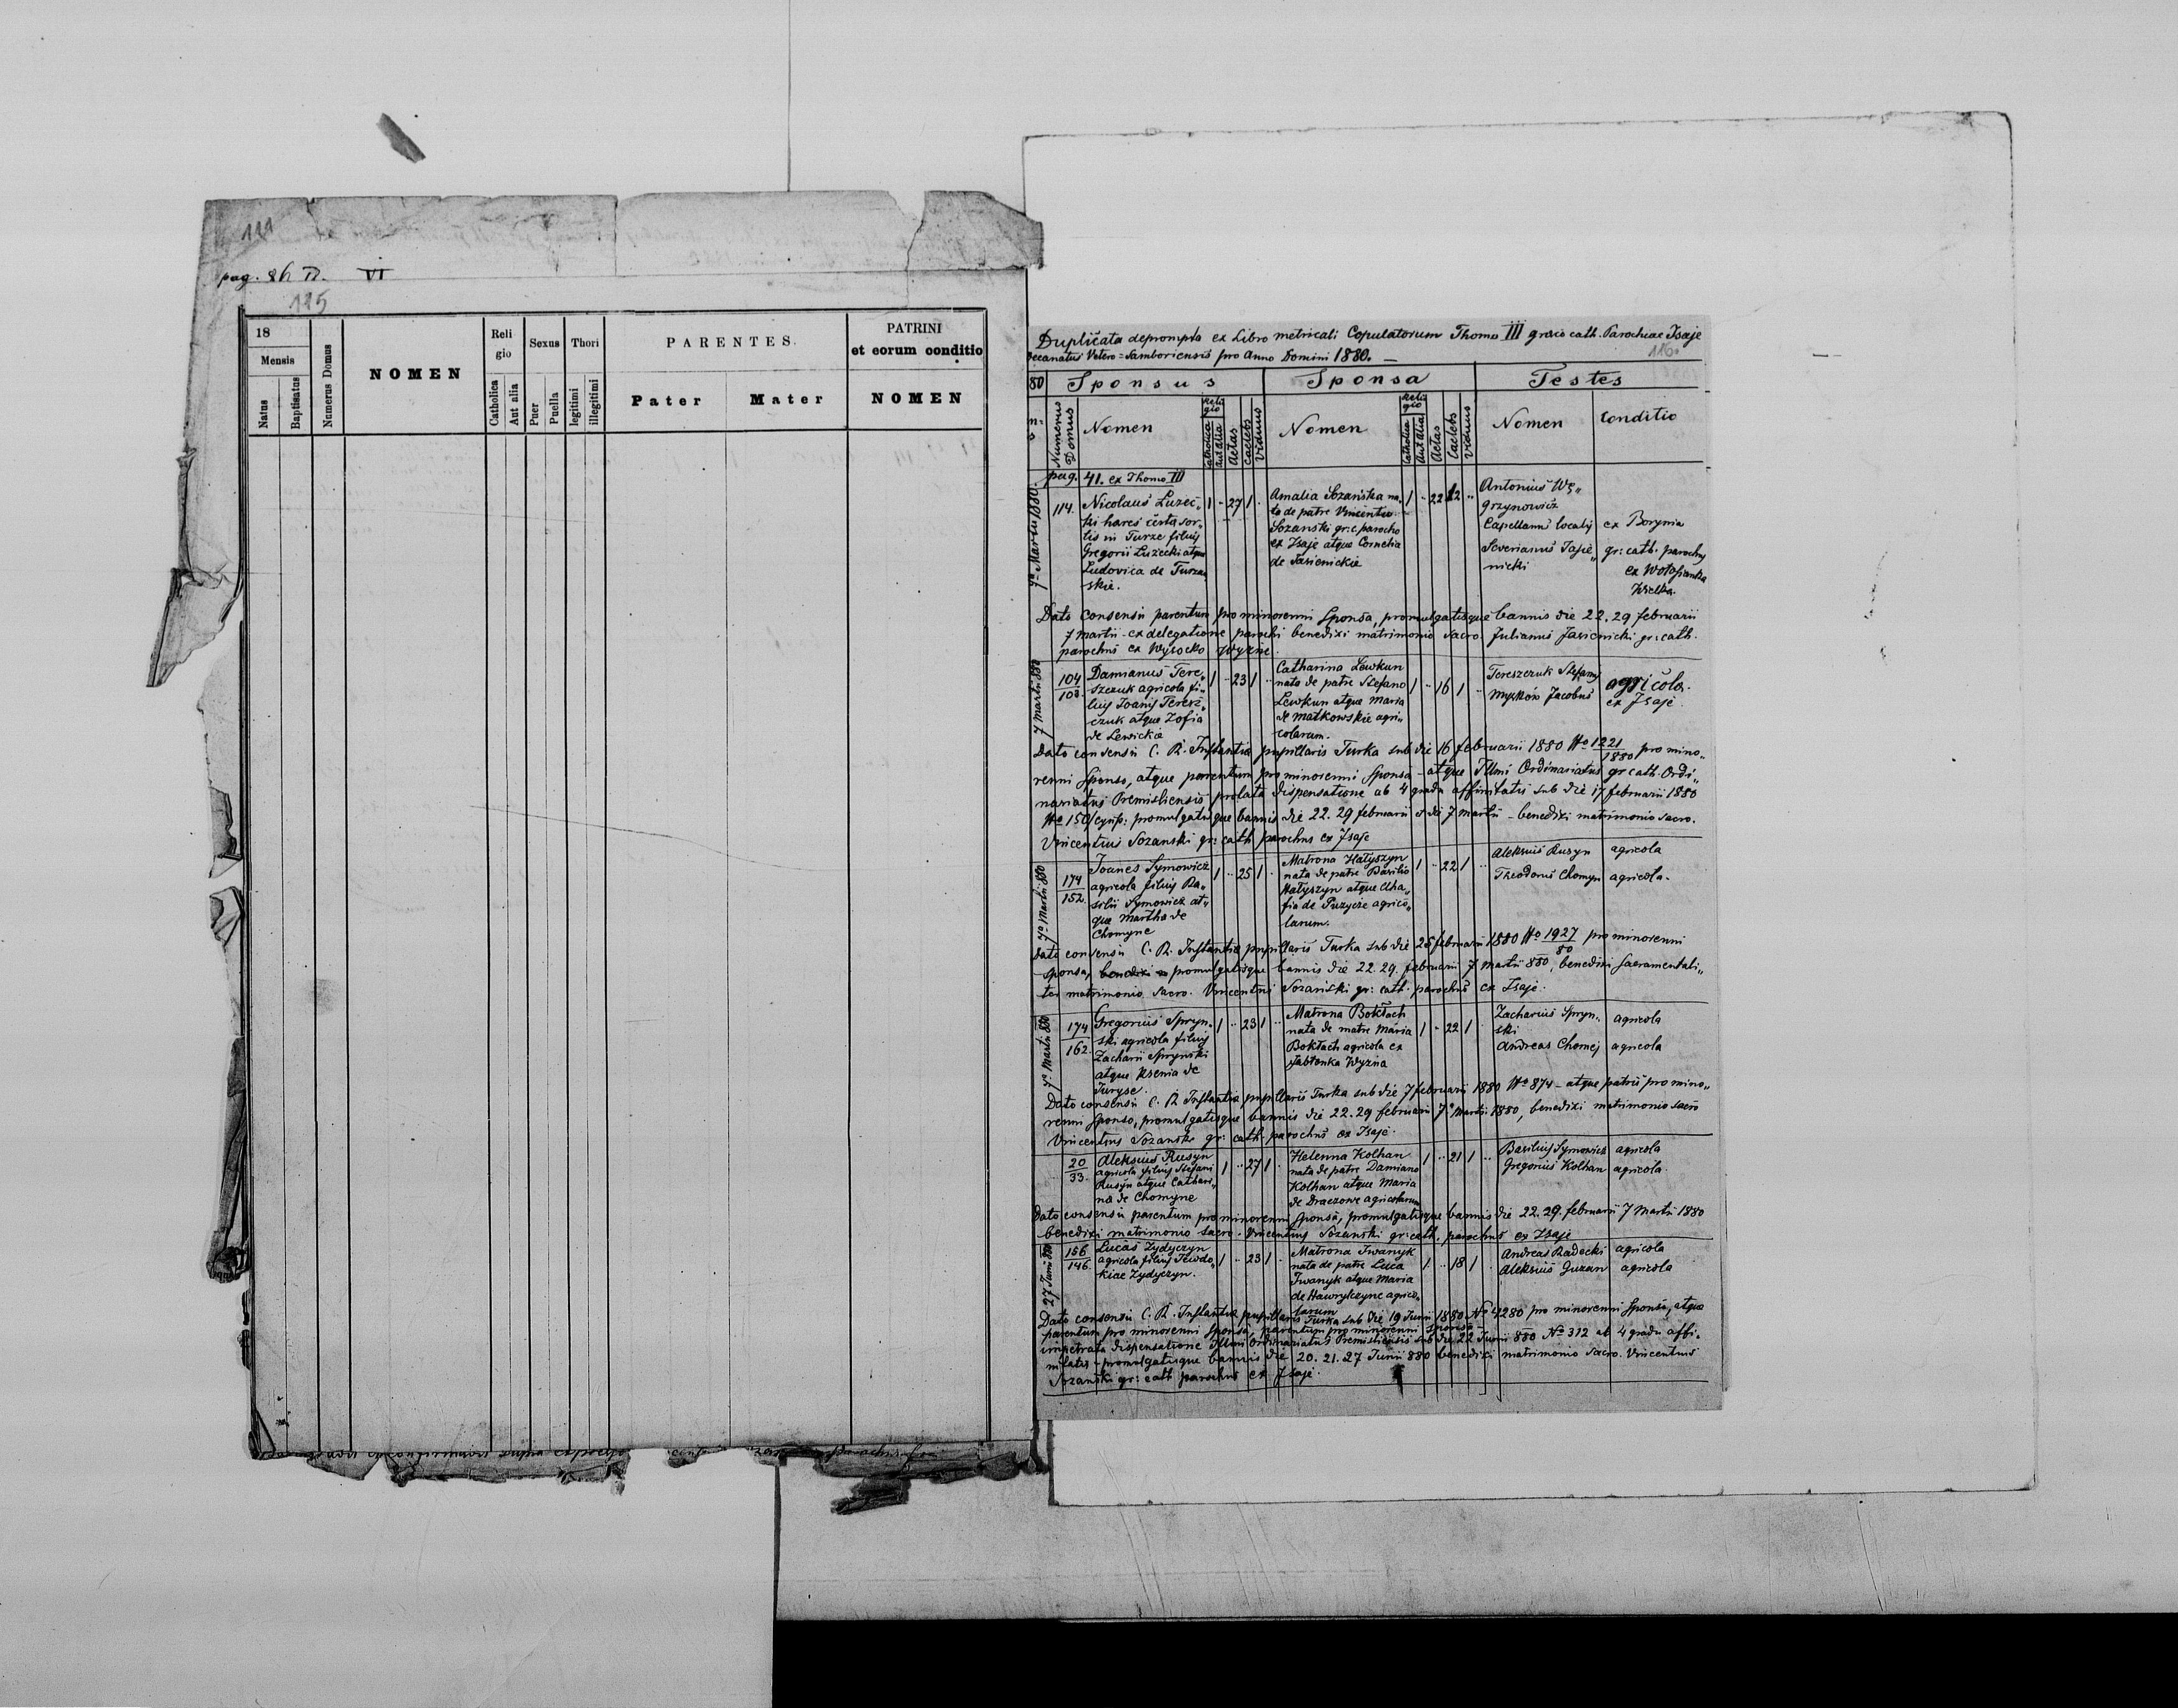 111
pag. 8
VI
115
18
Mensis
Natus
Baptisatus
Numerus Domus
NOMEN
Reli
gio
Catholica
Aut alia
Sexus
Puer
Puella
Thori
legitimi
illegitimi
PARENTES.
Pater
Mater
PATRINI
et eorum conditio
NOMEN
Duplicata deprompta ex Libro metricali Copulatorum Thomo III graco cath. Parochiae Isaje
Decanatus Vetero=Samboriensis pro Anno Domini 1880. —
116.
80
Sponsus
Sponsa
Testes
Numerus
Domus
Nomen
Reli
gio
Catholica
Aut alia
Aetas
Caelebs
Viduus
Nomen
Reli
gio
Catholica
Aut alia
Aetas
Caelebs
Viduus
Nomen
Conditio
pag. 41. ex Thomo III
7a Martii 1880.
114.
Nicolaus Luzec„
ki hares certa sor„
tis in Turze filius
Gregorii Luzecki atque
Ludovica de Turzan
skie.
1 " 27 1
Amalia Sozańska na„
ta de patre Vincentio
Sozanski gr: c parocho
ex Isaje atque Cornelia
de Jasienickie
1 " 22 "
Antonius Wę„
grzynowicz
Capellanus localij
ex Borynia
Severianus Jasie„
nicki
gr: cath. parochus
ex Wołosianka
Wielka.
Dato consensu parentum pro minorenni Sponsa, promulgatisque bannis die 22. 29 februarii
7 Martii - ex delegatione parochi benedixi matrimonio sacro. Julianus Jasienicki gr: cath.
parochus ex Wysocko Wyzne.
7 Martii 880
104
103
Damianus Tere„
szczuk agricola fi„
lius Joanis Teresz„
czuk atque Zofia
de Lewickie
1 " 23 1 "
Catharina Lewkun
nata de patre Stefano
Lewkun atque Maria
de Matkowskie agri„
colarum.
1 " 16 1 "
Tereszczuk Stefanus
Myzków Jacobus
agricola.
ex Isaje.
Dato consensu C. R. Instantia pupillaris Turka sub die 16 februarii 1880 No 1221/1880 pro mino„
renni Sponso, atque parentum pro minorenni Sponsa - atque Illmi Ordinariatus gr cath. Ordi„
nariatus Premisliensis prolata dispensatione ab 4 gradu affinitatis sub die 17 februarii 1880
No 150/ promulgatisque bannis die 22. 29 februarii et die 7 Martii - benedixi matrimonio sacro.
Vincentius Sozanski gr: cath parochus ex Isaje
7a Martii 880
174
152
Joanes Symowicz
agricola filius Ba„
silii Symowicz at„
que Martha de
Chomyne
1 " 25 1 "
Matrona Hatyszyn
nata de patre Basilio
Hatyszyn atque Aha„
fia de Puzycze agrico„
larum.
1 " 22 1 "
Aleksius Rusyn
agricola
Theodorus Chomyn
agricola.
Dato consensu C. R. Instantia pupillaris Turka sub die 25 februarii 1880 No 1927/80 pro minorenni
Sponsa, benedixi promulgatisque bannis die 22. 29. februarii 7 Martii 880, benedixi sacramentali„
ter matrimonio sacro. Vincentius Sozanski gr: cath. parochus ex Isaje.
7a Martii 880
174
162.
Gregorius Spryn„
ski agricola filius
Zacharii Sprynski
atque Ksenia de
Turyse.
1 " 23 1 "
Matrona Bokłach
nata de matre Maria
Bokłach agricola ex
Jabłonka Wyzna
1 " 22 1 "
Zacharius Spryn„
ski
agricola
Andreas Chomej
agricola
Dato consensu C. R. Instantia pupillaris Turka sub die 7 februarii 1880 No 874 - atque patris pro mino„
renni Sponso, promulgatisque bannis die 22. 29 februarii 7a Martii 1880, benedixi matrimonio sacro
Vincentius Sozanski gr: cath. parochus ex Isaje.
20
33.
Aleksius Rusyn
agricola filius Stefani
Rusyn atque Cathari„
na de Chomyne
1 " 27 1 "
Helenna Kolhan
nata de patre Damiano
Kolhan atque Maria
de Draczowe agricolarum
1 " 21 1 "
Basilius Symowicz
agricola
Gregorius Kolhan
agricola.
Dato consensu parentum pro minorenni Sponsa, promulgatisque bannis die 22. 29. februarii 7 Martii 1880
benedixi matrimonio sacro. Vincentius Sozanski gr: cath. parochus ex Isaje
D 27 Junii 880
156
146
Lucas Zydyczyn
agricola filius Tewdo„
kiae Zydyczyn.
1 " 23 1 "
Matrona Iwanyk
nata de patre Luca
Iwanyk atque Maria
de Hawrylczyne agrico„
larum
1 " 18 1 "
Andreas Radecki
agricola
Aleksius Guzan
agricola
Dato consensu C. R. Instantia pupillaris Turka sub die 19 Junii 1880 No 4280 pro minorenni Sponso, atque
parentum pro minorenni Sponsa, parentum pro minorenni Sponsa -
impetrata dispensatione Illmi Ordinariatus Premisliensis sub die 22 Junii 880 No 312 ab 4 gradu affi„
nitatis - promulgatisque bannis die 20. 21. 27 Junii 880 benedixi matrimonio sacro. Vincentius
Sozanski gr: cath parochus ex Isaje.